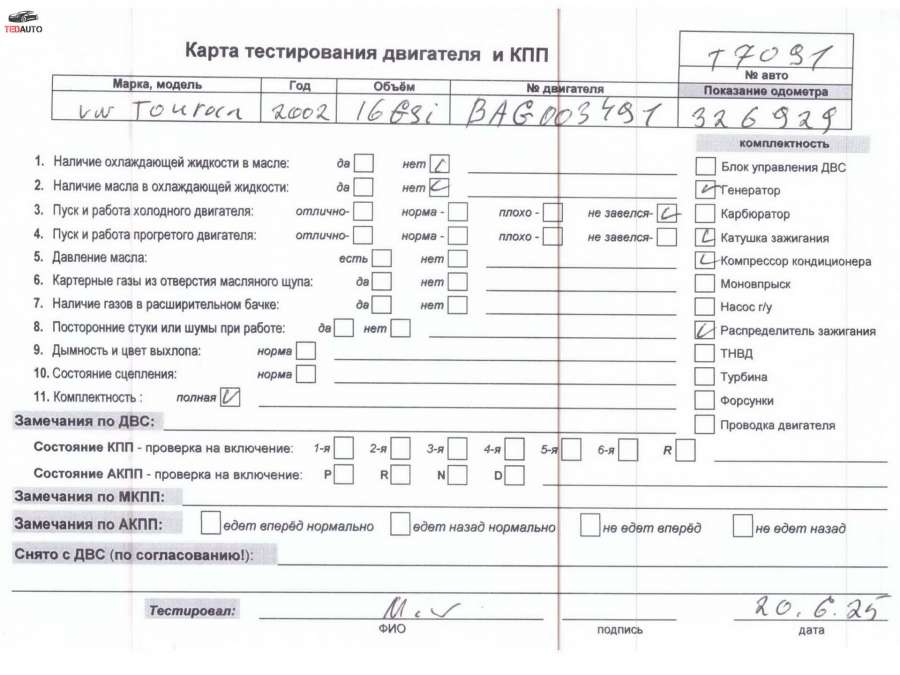 TEDAUTO
Карта тестирования двигателя и КПП
T7091
№ авто
Марка, модель Год Объём № двигателя Показание одометра
VW Touran 2002 16 FSi BAG003491 326929
комплектность
1. Наличие охлаждающей жидкости в масле: да нет
Блок управления ДВС
2. Наличие масла в охлаждающей жидкости: да нет
Генератор
3. Пуск и работа холодного двигателя: отлично- норма - плохо - не завелся-
Карбюратор
4. Пуск и работа прогретого двигателя: отлично- норма - плохо - не завелся-
Катушка зажигания
5. Давление масла: есть нет
Компрессор кондиционера
6. Картерные газы из отверстия масляного щупа: да нет
Моновпрыск
7. Наличие газов в расширительном бачке: да нет
Насос г/у
8. Посторонние стуки или шумы при работе: да нет
Распределитель зажигания
9. Дымность и цвет выхлопа: норма
ТНВД
10. Состояние сцепления: норма
Турбина
11. Комплектность : полная
Форсунки
Замечания по ДВС:
Проводка двигателя
Состояние КПП - проверка на включение: 1-я 2-я 3-я 4-я 5-я 6-я R
Состояние АКПП - проверка на включение: P R N D
Замечания по МКПП:
Замечания по АКПП: едет вперёд нормально едет назад нормально не едет вперёд не едет назад
Снято с ДВС (по согласованию!):
Тестировал: 20.6.25
ФИО подпись дата